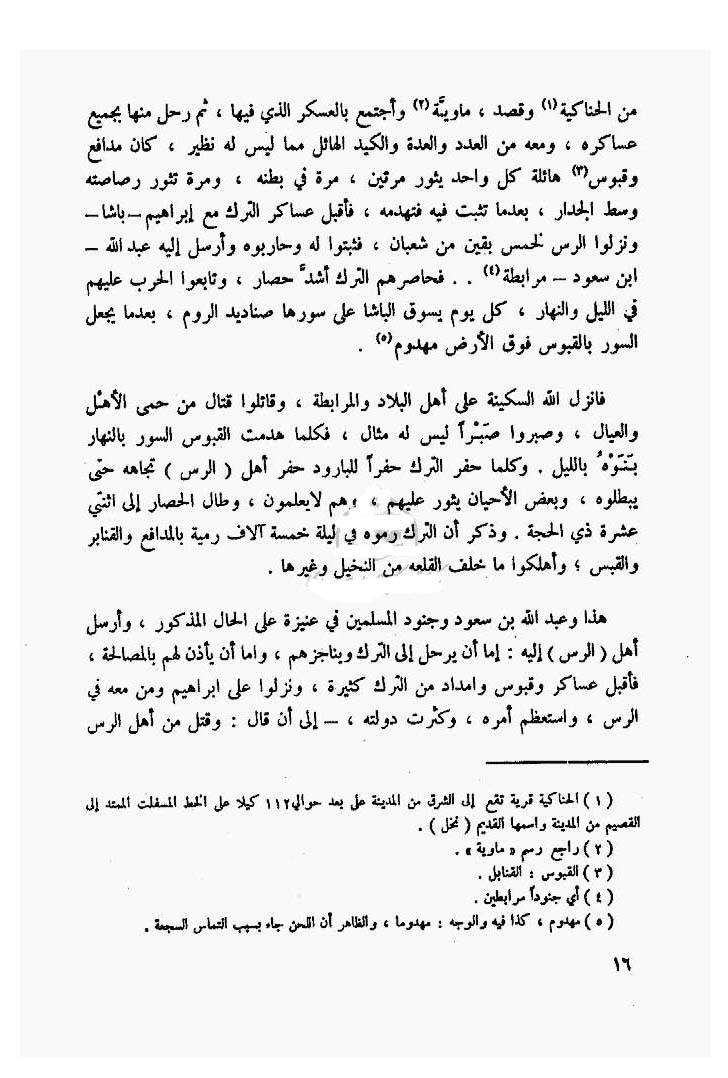 من الحناكية(١) وقصد ، ماويَّة(٢) وأجتمع بالعسكر الذي فيها ، ثم رحل منها بجميع
عساكره ، ومعه من العدد والعدة والكيد الهائل مما ليس له نظير ، كان مدافع
وقبوس(٣) هائلة كل واحد يثور مرتين ، مرة في بطنه ، ومرة تثور رصاصته
وسط الجدار ، بعدما تثبت فيه فتهدمه ، فأقبل عساكر الترك مع إبراهيم–باشا–
ونزلوا الرس لخمس بقين من شعبان ، فثبتوا له وحاربوه وأرسل إليه عبد الله –
ابن سعود – مرابطة(٤) . . فحاصرهم الترك أشدَّ حصار ، وتابعوا الحرب عليهم
في الليل والنهار ، كل يوم يسوق الباشا على سورها صناديد الروم ، بعدما يجعل
السور بالقبوس فوق الأرض مهدوم(٥) .
فانزل الله السكينة على أهل البلاد والمرابطة ، وقاتلوا قتال من حمى الأهْل
والعيال ، وصبروا صَبْراً ليس له مثال ، فكلما هدمت القبوس السور بالنهار
بَنَوْهُ بالليل . وكلما حفر الترك حفراً للبارود حفر أهل ( الرس ) تجاهه حتى
يبطلوه ، وبعض الأحيان يثور عليهم ، وهم لايعلمون ، وطال الحصار إلى اثنتي
عشرة ذي الحجة . وذكر أن الترك رموه في ليلة خمسة آلاف رمية بالمدافع والقنابر
والقبس ؛ وأهلكوا ما خلف القلعه من النخيل وغيرها .
هذا وعبد الله بن سعود وجنود المسلمين في عنيزة على الحال المذكور ، وأرسل
أهل ( الرس ) إليه : إما أن يرحل إلى الترك ويناجزهم ، واما أن يأذن لهم بالمصالحة ،
فأقبل عساكر وقبوس وامداد من الترك كثيرة ، ونزلوا على ابراهيم ومن معه في
الرس ، واستعظم أمره ، وكثرت دولته ، – إلى أن قال : وقتل من أهل الرس
( ١ ) الحناكية قرية تقع إلى الشرق من المدينة على بعد حوالي١١٢ كيلا على الخط المسفلت الممتد إلى
القصيم من المدينة واسمها القديم ( نخل ) .
( ٢ ) راجع رسم « ماوية » .
( ٣ ) القبوس : القنابل .
( ٤ ) أي جنوداً مرابطين .
( ٥ ) مهدوم ، كذا فيه والوجه : مهدوما ، والظاهر أن اللحن جاء بسبب التماس السجعة .
١٦